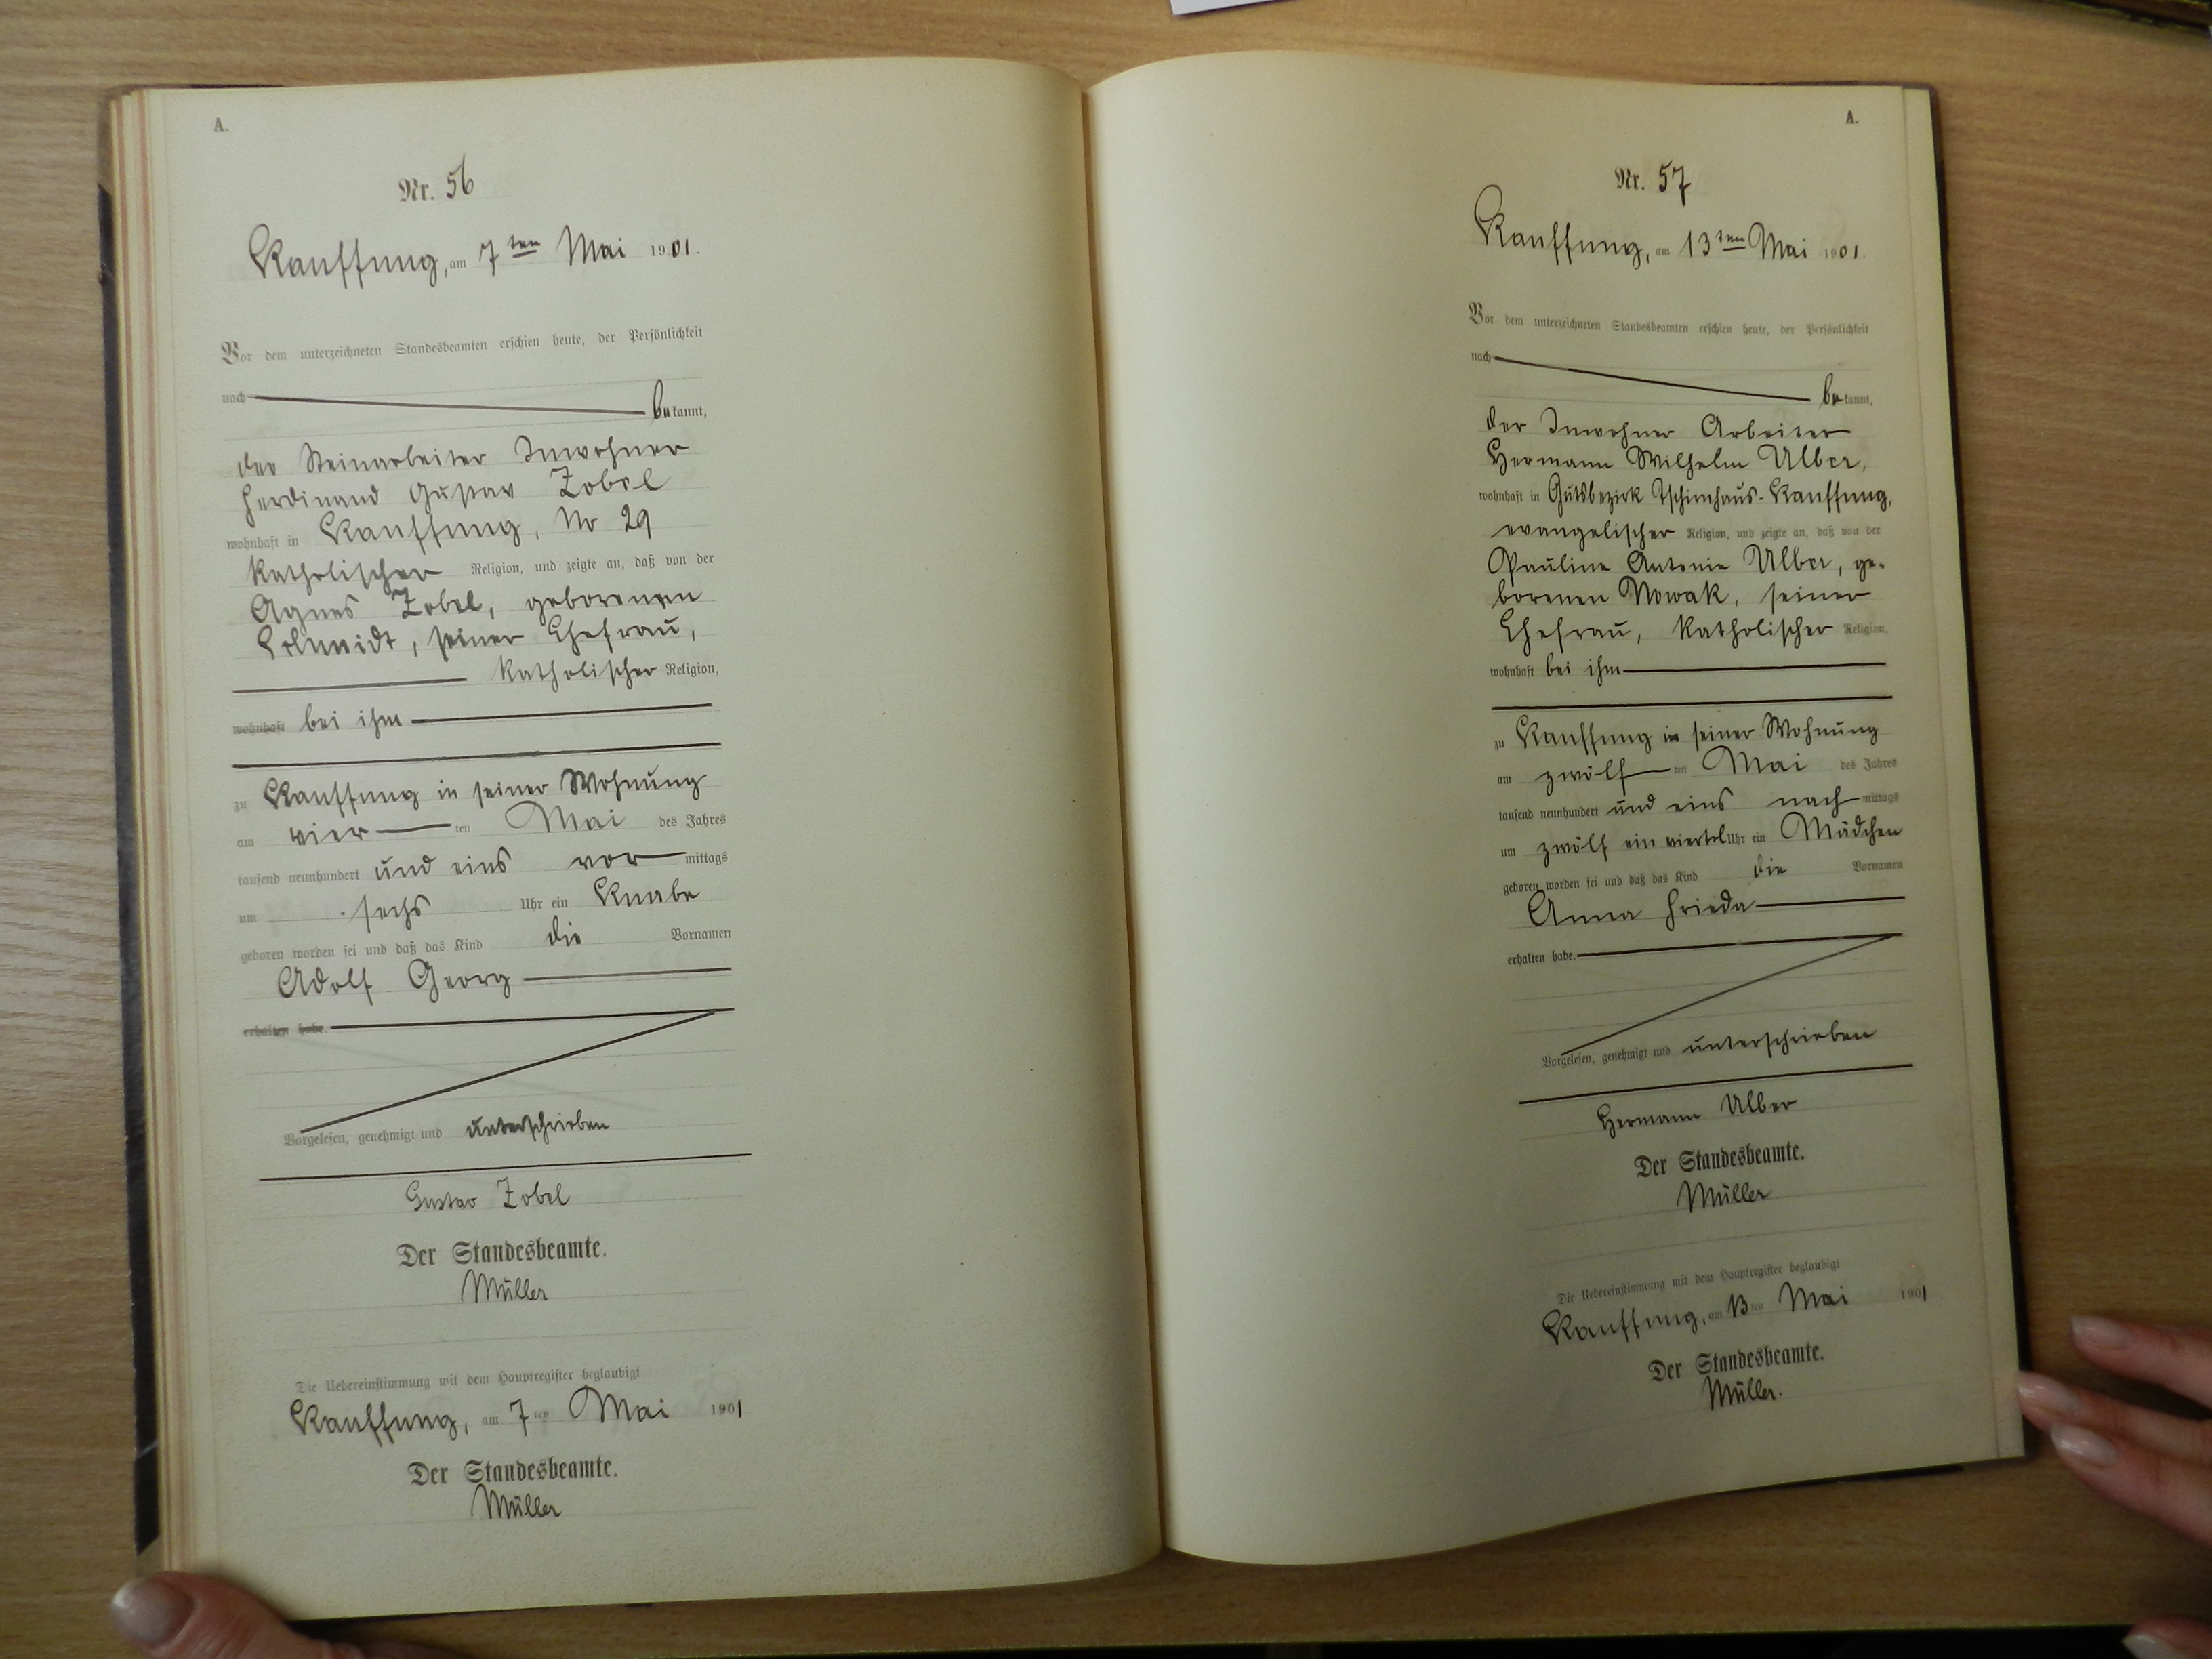 A.
Nr. 56
Kauffung, am 7ten Mai 1901.
Vor dem unterzeichneten Standesbeamten erschien heute, der Persönlichkeit
nach bekannt,
der Steinarbeiter Inwohner
Ferdinand Gustav Zobel
wohnhaft in Kauffung, No 29
katholischer Religion, und zeigte an, daß von der
Agnes Zobel, geborenen
Schmidt, seiner Ehefrau,
katholischer Religion,
wohnhaft bei ihm
zu Kauffung in seiner Wohnung
am vier ten Mai des Jahres
tausend neunhundert und eins vor mittags
um sechs Uhr ein Knabe
geboren worden sei und daß das Kind die Vornamen
Adolf Georg
erhalten habe.
Vorgelesen, genehmigt und unterschrieben
Gustav Zobel
Der Standesbeamte.
Müller
Die Uebereinstimmung mit dem Hauptregister beglaubigt
Kauffung, am 7ten Mai 1901
Der Standesbeamte.
Müller
A.
Nr. 57
Kauffung, am 13ten Mai 1901.
Vor dem unterzeichneten Standesbeamten erschien heute, der Persönlichkeit
nach bekannt,
der Inwohner Arbeiter
Hermann Wilhelm Ulber,
wohnhaft in Gutsbezirk Tschirnhaus-Kauffung,
evangelischer Religion, und zeigte an, daß von der
Pauline Antonie Ulber, ge-
borenen Nowak, seiner
Ehefrau, katholischer Religion,
wohnhaft bei ihm
zu Kauffung in seiner Wohnung
am zwölf ten Mai des Jahres
tausend neunhundert und eins nach mittags
um zwölf ein viertel Uhr ein Mädchen
geboren worden sei und daß das Kind die Vornamen
Anna Frieda
erhalten habe.
Vorgelesen, genehmigt und unterschrieben
Hermann Ulber
Der Standesbeamte.
Müller
Die Uebereinstimmung mit dem Hauptregister beglaubigt
Kauffung, am 13ten Mai 1901
Der Standesbeamte.
Müller.